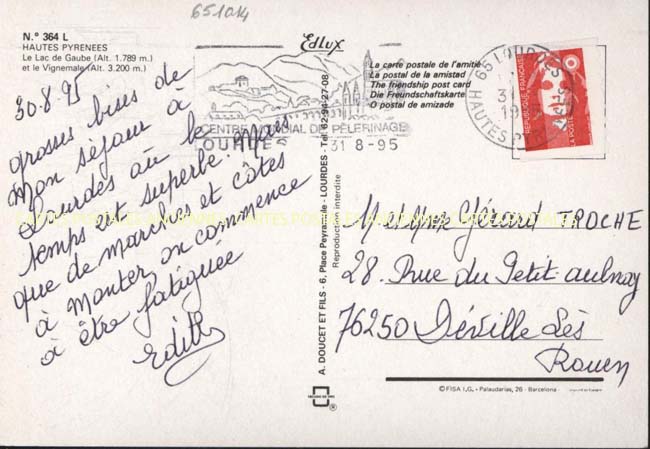 651014
N.º 364 L
HAUTES PYRENEES
Le Lac de Gaube (Alt. 1.789 m.)
et le Vignemale (Alt. 3.200 m.)
Edlux
La carte postale de l'amitié
La postal de la amistad
The friendship post card
Die Freundschaftskarte
O postal de amizade
30.8.95
grosses bises de
mon séjour à
Lourdes où le
temps est superbe. Mais
que de marches et côtes
à monter on commence
à être fatiguée
Edith
CENTRE MONDIAL DE PÈLERINAGE
LOURDES
31 8-95
65 LOURDES
HAUTES
REPUBLIQUE FRANÇAISE
LA POSTE
A. DOUCET ET FILS - 6, Place Peyramale - LOURDES - Tel 62-94-27-08
Reproduction interdite
M et Mme Gérard TROCHE
28 Rue du Petit aulnay
76250 Déville Lès
Rouen
©FISA I.G., - Palaudarias, 26 - Barcelona
CARTES POSTALES ANCIENNES CARTES POSTALES ANCIENNES CARTES POSTALES